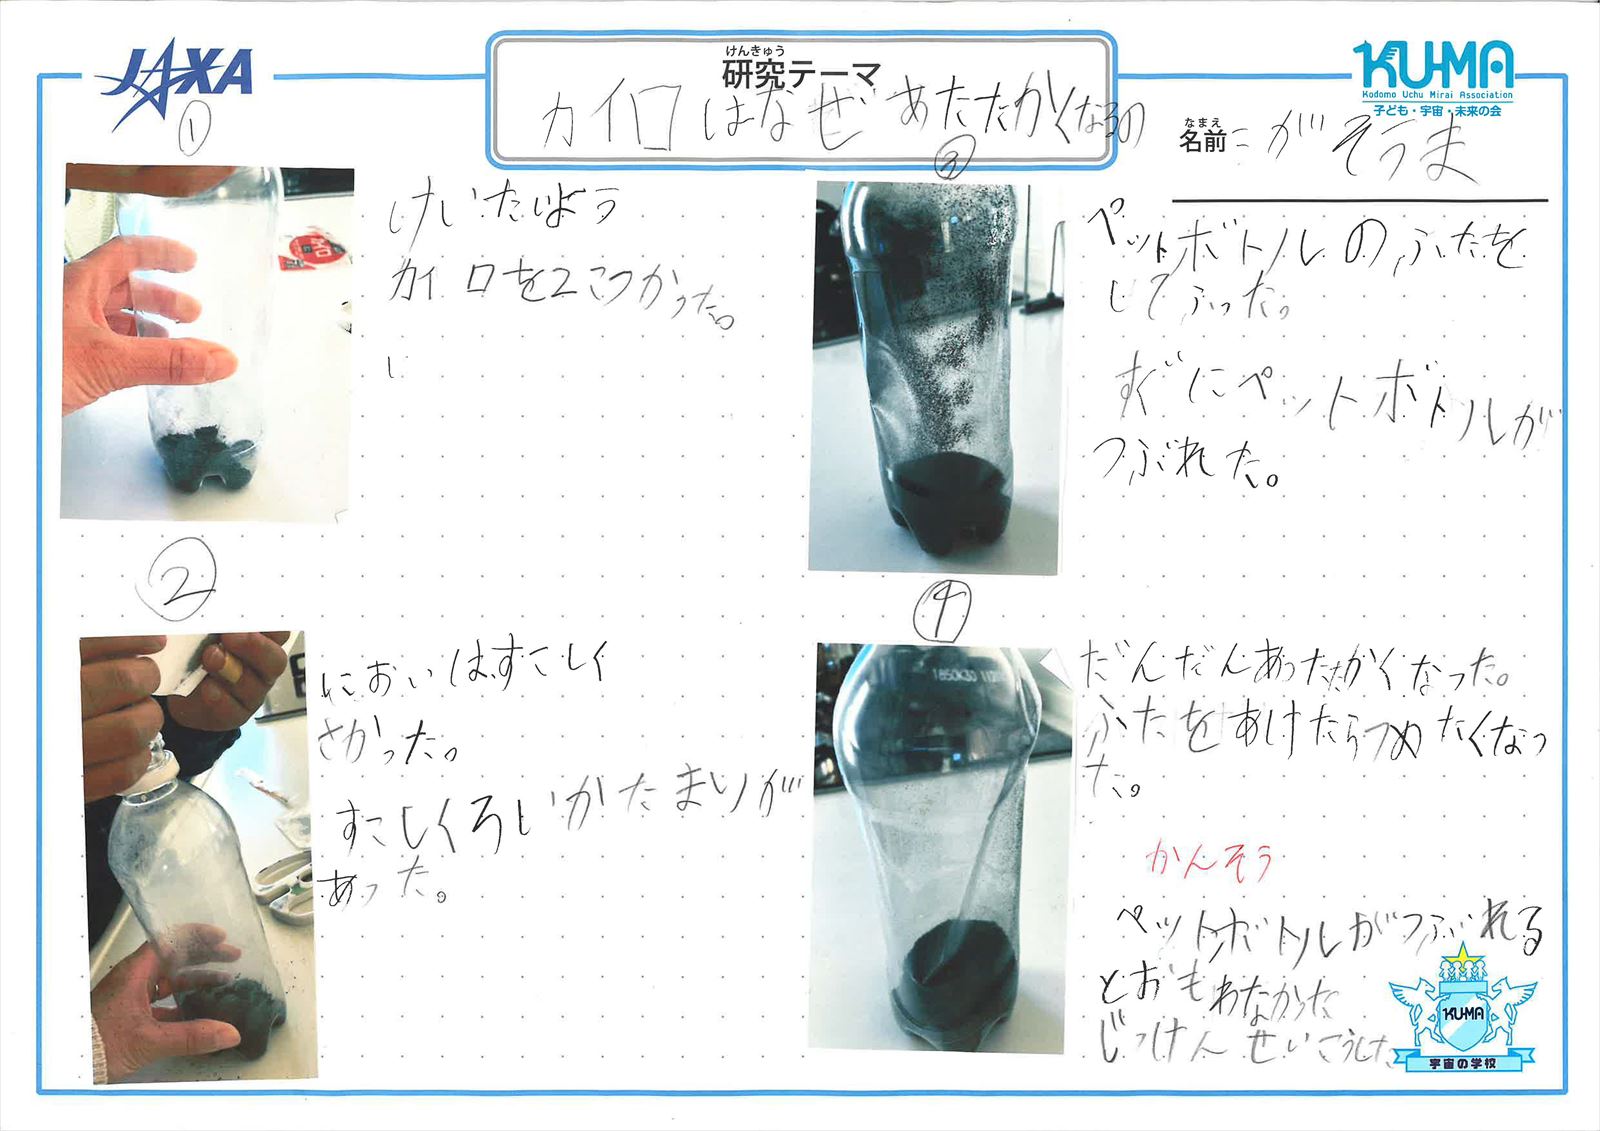 JAXA
けんきゅう
研究テーマ
カイロはなぜあたたかくなるの
KU-MA
Kodomo Uchu Mirai Association
子ども・宇宙・未来の会
なまえ
名前
こがそうま
①
けいたいよう
カイロを2こつかった。
②
においはすこしく
さかった。
すこしくろいかたまりが
あった。
③
ペットボトルのふたを
してふった。
すぐにペットボトルが
つぶれた。
④
だんだんあったかくなった。
ふたをあけたらつめたくなっ
た。
かんそう
ペットボトルがつぶれる
とおもわなかった
じっけんせいこうした
KU-MA
宇宙の学校